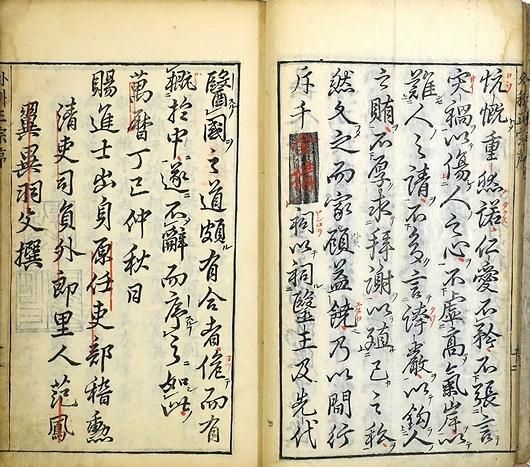 忼慨重然諾仁愛不矜不張言
灾禍以傷人之心不虛高氣岸以
難人之請不多言嚴以鈎人
之賄不厚求拜謝以殖己之私
然久之而家顧益饒乃以間行
斥千祠以祠醫王及先代
醫國之道頗有合者而有
概於中遂不辭而序之如此
萬曆丁巳仲秋日
賜進士出身原任吏部稽勳
清吏司員外郎里人范鳳
翼異羽父撰